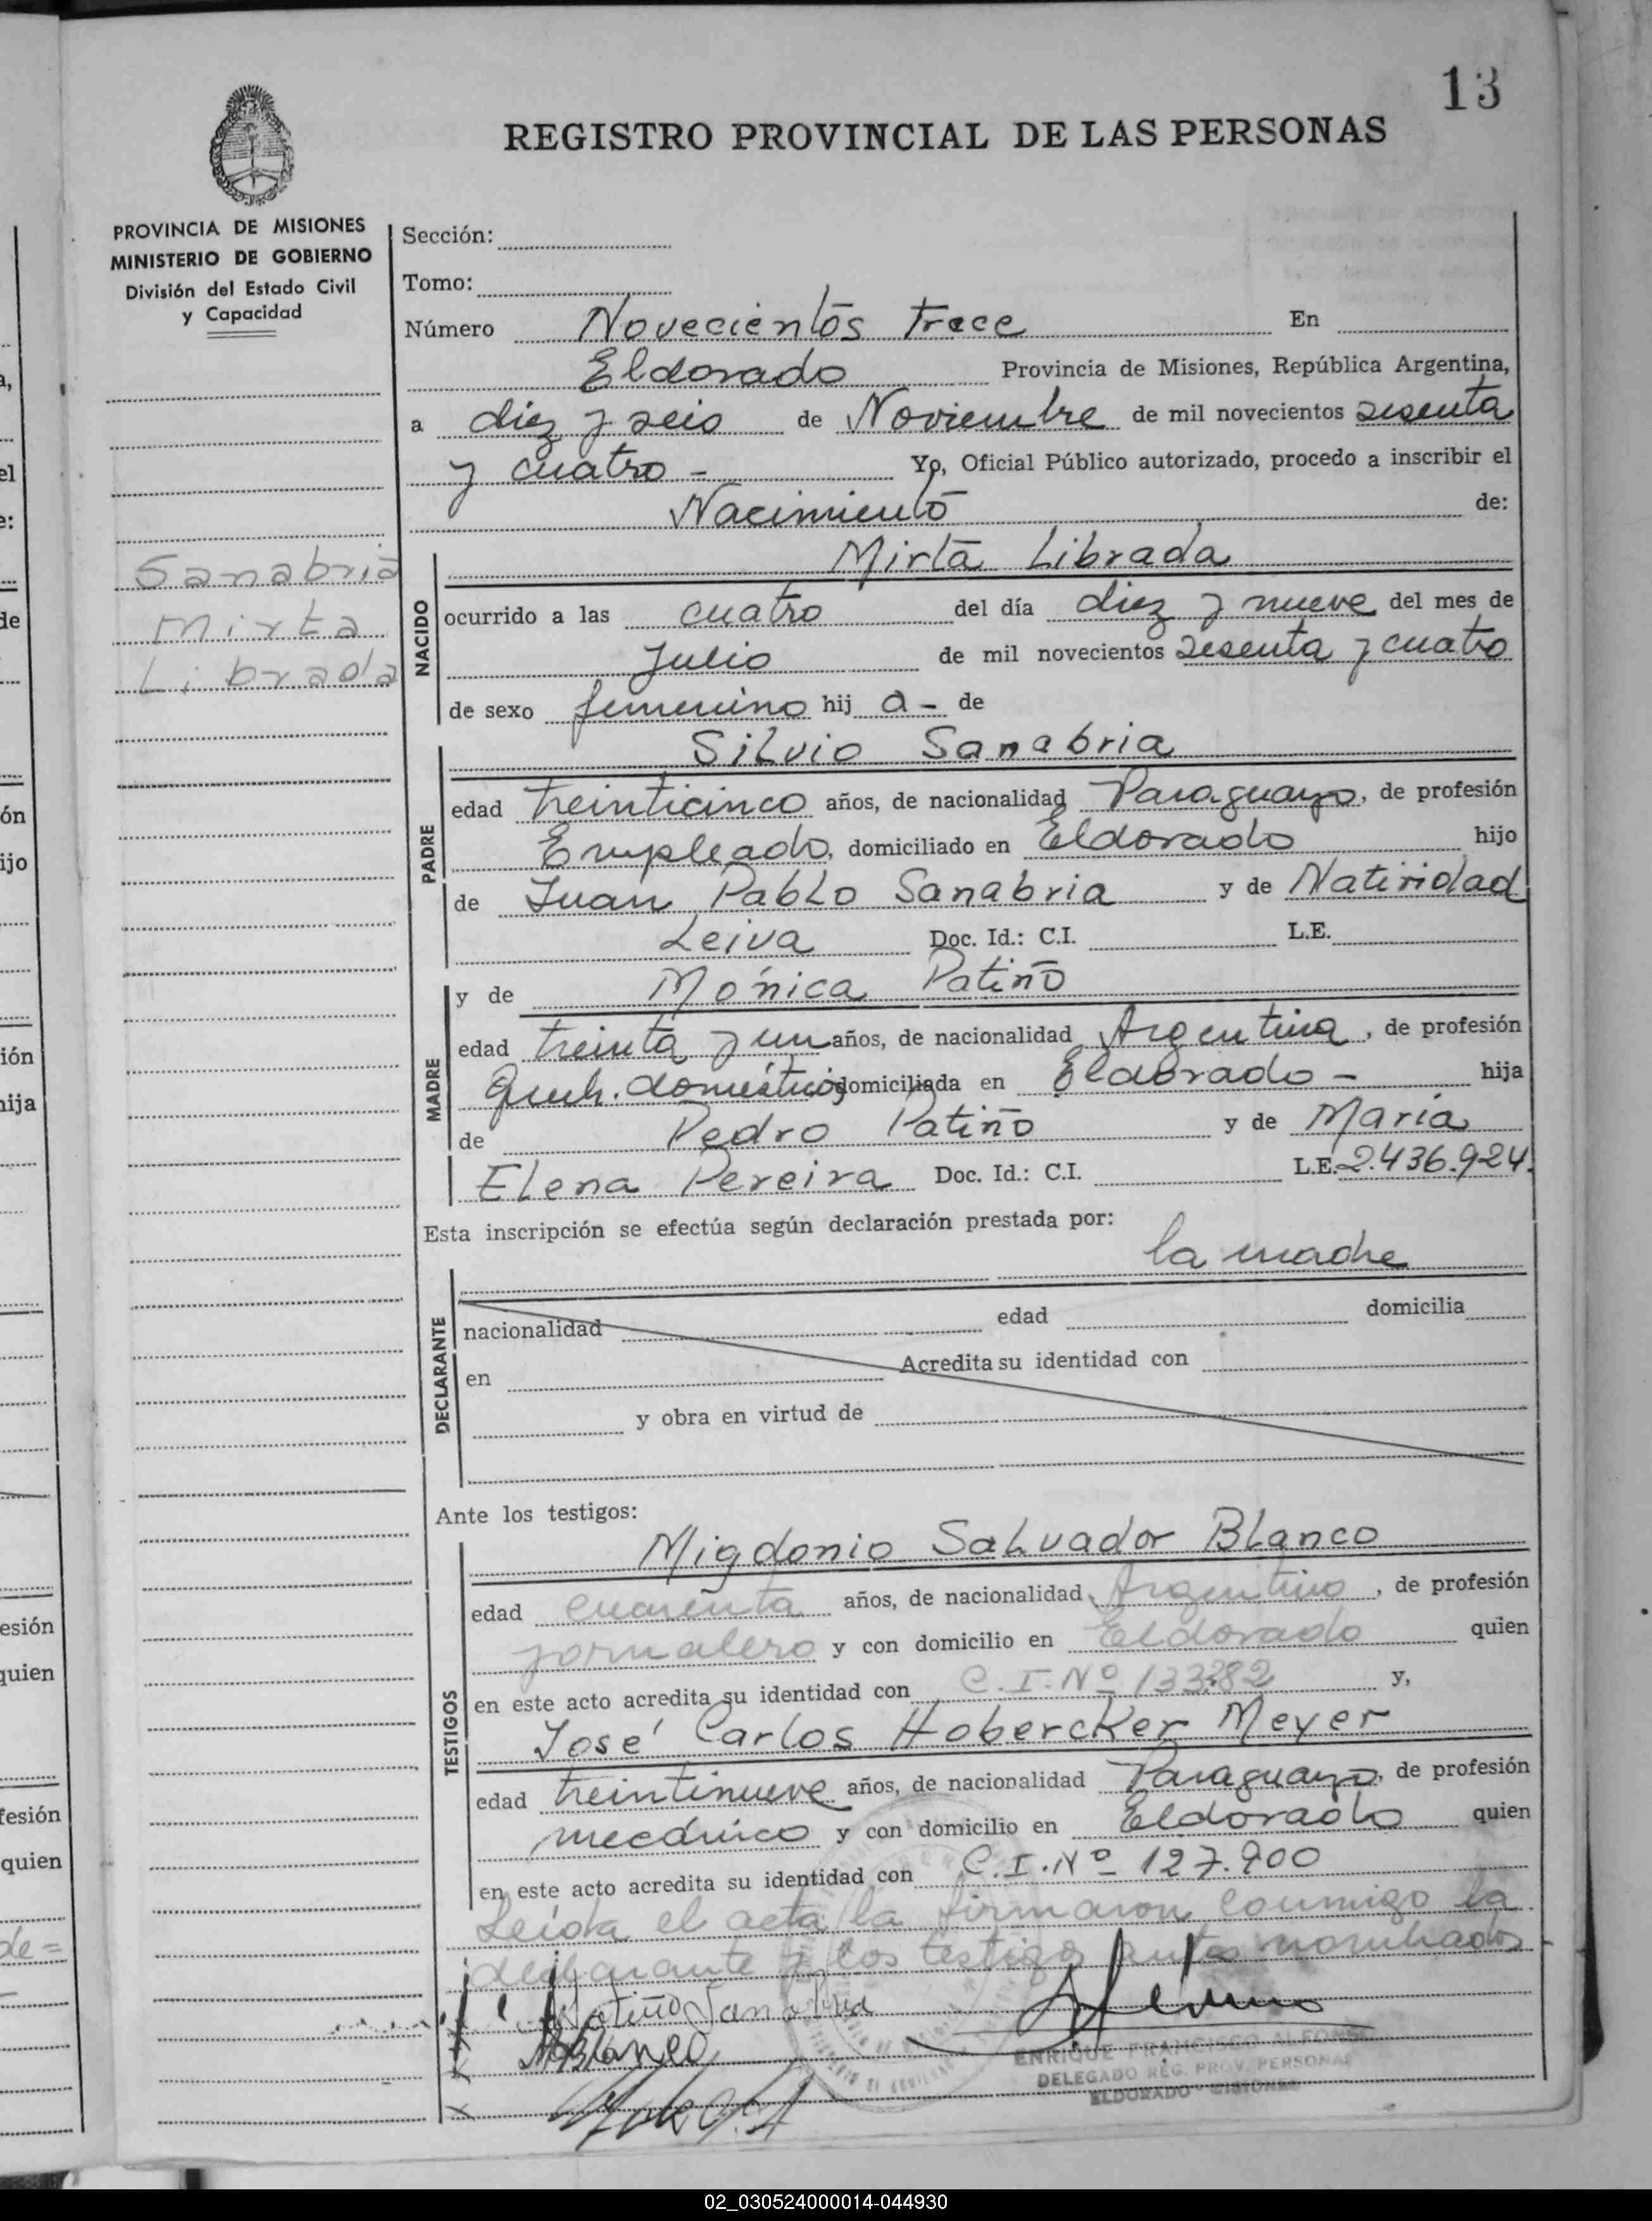 13
REGISTRO PROVINCIAL DE LAS PERSONAS
PROVINCIA DE MISIONES
MINISTERIO DE GOBIERNO
División del Estado Civil
y Capacidad
Sanabria
Mirta
Librada
Sección:
Tomo:
Número Novecientos trece En
Eldorado Provincia de Misiones, República Argentina,
a diez y seis de Noviembre de mil novecientos sesenta
y cuatro - Yo, Oficial Público autorizado, procedo a inscribir el
Nacimiento de:
NACIDO
Mirta Librada
ocurrido a las cuatro del día diez y nueve del mes de
Julio de mil novecientos sesenta y cuatro
de sexo femenino hij a - de
PADRE
Silvio Sanabria
edad treinticinco años, de nacionalidad Paraguayo, de profesión
Empleado, domiciliado en Eldorado hijo
de Juan Pablo Sanabria y de Natividad
Leiva Doc. Id.: C.I. L.E.
MADRE
y de Mónica Patiño
edad treinta y un años, de nacionalidad Argentina, de profesión
Queh. domésticos domiciliada en Eldorado - hija
de Pedro Patiño y de María
Elena Pereira Doc. Id.: C.I. L.E. 2.436.924.
Esta inscripción se efectúa según declaración prestada por:
la madre
DECLARANTE
nacionalidad edad domicilia
en Acredita su identidad con
y obra en virtud de
Ante los testigos:
TESTIGOS
Migdonio Salvador Blanco
edad cuarenta años, de nacionalidad Argentino, de profesión
jornalero y con domicilio en Eldorado quien
en este acto acredita su identidad con C.I. Nº 133282 y,
José Carlos Hobercker Meyer
edad treintinueve años, de nacionalidad Paraguayo, de profesión
mecánico y con domicilio en Eldorado quien
en este acto acredita su identidad con C.I. Nº 127.900
Leída el acta la firmaron conmigo la
declarante y los testigos antes nombrados
Patiño Sanabria
Blanco
ENRIQUE FRANCISCO ALFONSO
DELEGADO REG. PROV. PERSONAS
ELDORADO - MISIONES
02_030524000014-044930